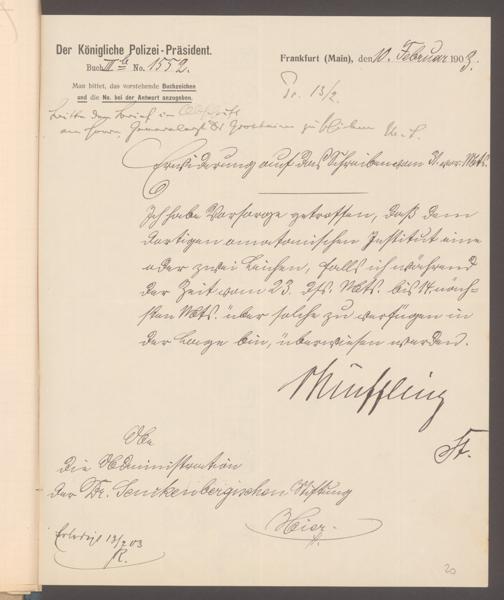 Der Königliche Polizei-Präsident.
Buch IIIb No. 1552.
Man bittet, das vorstehende Buchzeichen
und die No. bei der Antwort anzugeben.
Frankfurt (Main), den 10. Februar 1903.
Pr. 13/2.
Bitte den Brief in Abschrift
an Herrn Generalarzt Dr Grossheim zu
Erwiderung auf das Schreiben vom 31. vor. Mts.
Ich habe Vorsorge getroffen, daß dem
dortigen anatomischen Institut eine
oder zwei Leichen, falls ich während
der Zeit vom 23. dss. Mts. bis 14. näch-
sten Mts. über solche zu verfügen in
der Lage bin, überwiesen werden.
Müffling
An
die Administration
der Dr. Senckenbergischen Stiftung
Hier.
Erledigt 13/2 03
R.
20